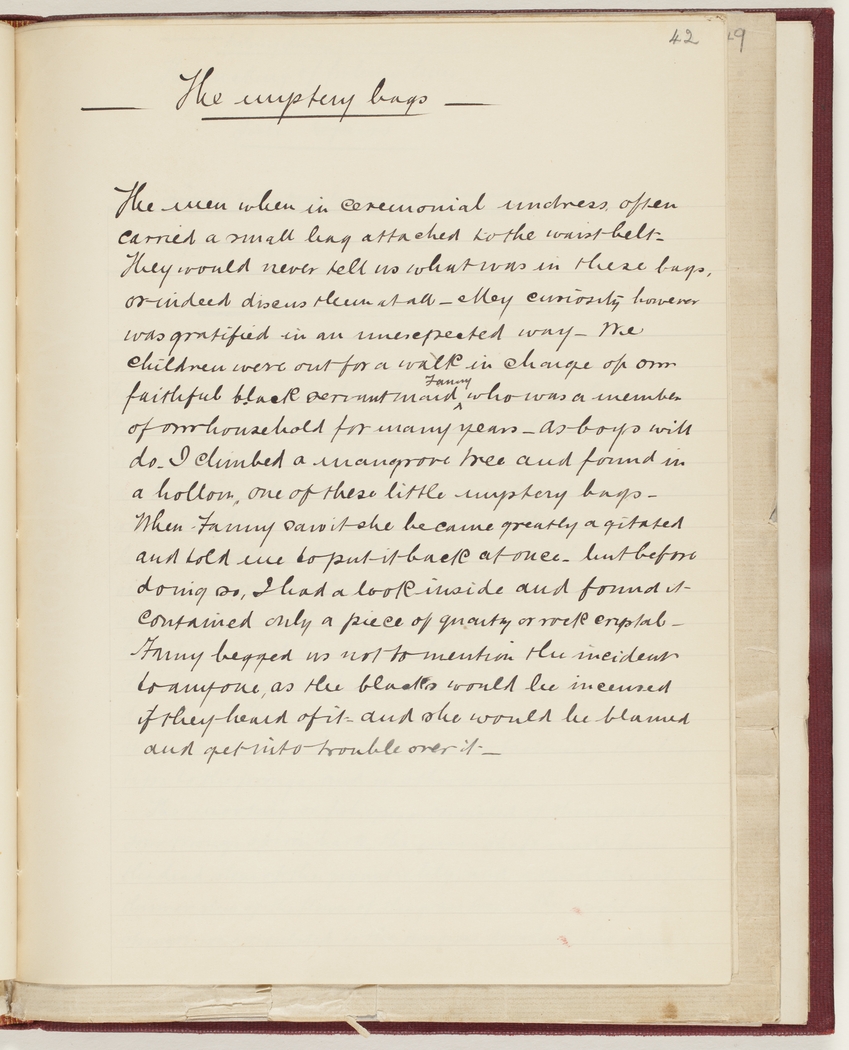 42
49
The mystery bags
The men when in ceremonial undress, often
carried a small bag attached to the waist belt-
They would never tell us what was in these bags,
or indeed discus them at all - My curiosity however
was gratified in an unexpected way - We
children were out for a walk in charge of our
Fanny
faithful black servant maid, who was a member
of our household for many years - As boys will
do - I climbed a mangrove tree and found in
a hollow, one of these little mystery bags -
When Fanny saw it she became greatly agitated
and told me to put it back at once - but before
doing so, I had a look inside and found it
contained only a piece of quarty or rock crystal -
Fanny begged us not to mention the incident
to anyone, as the blacks would be incensed
if they heard of it - and she would be blamed
and get into trouble over it -